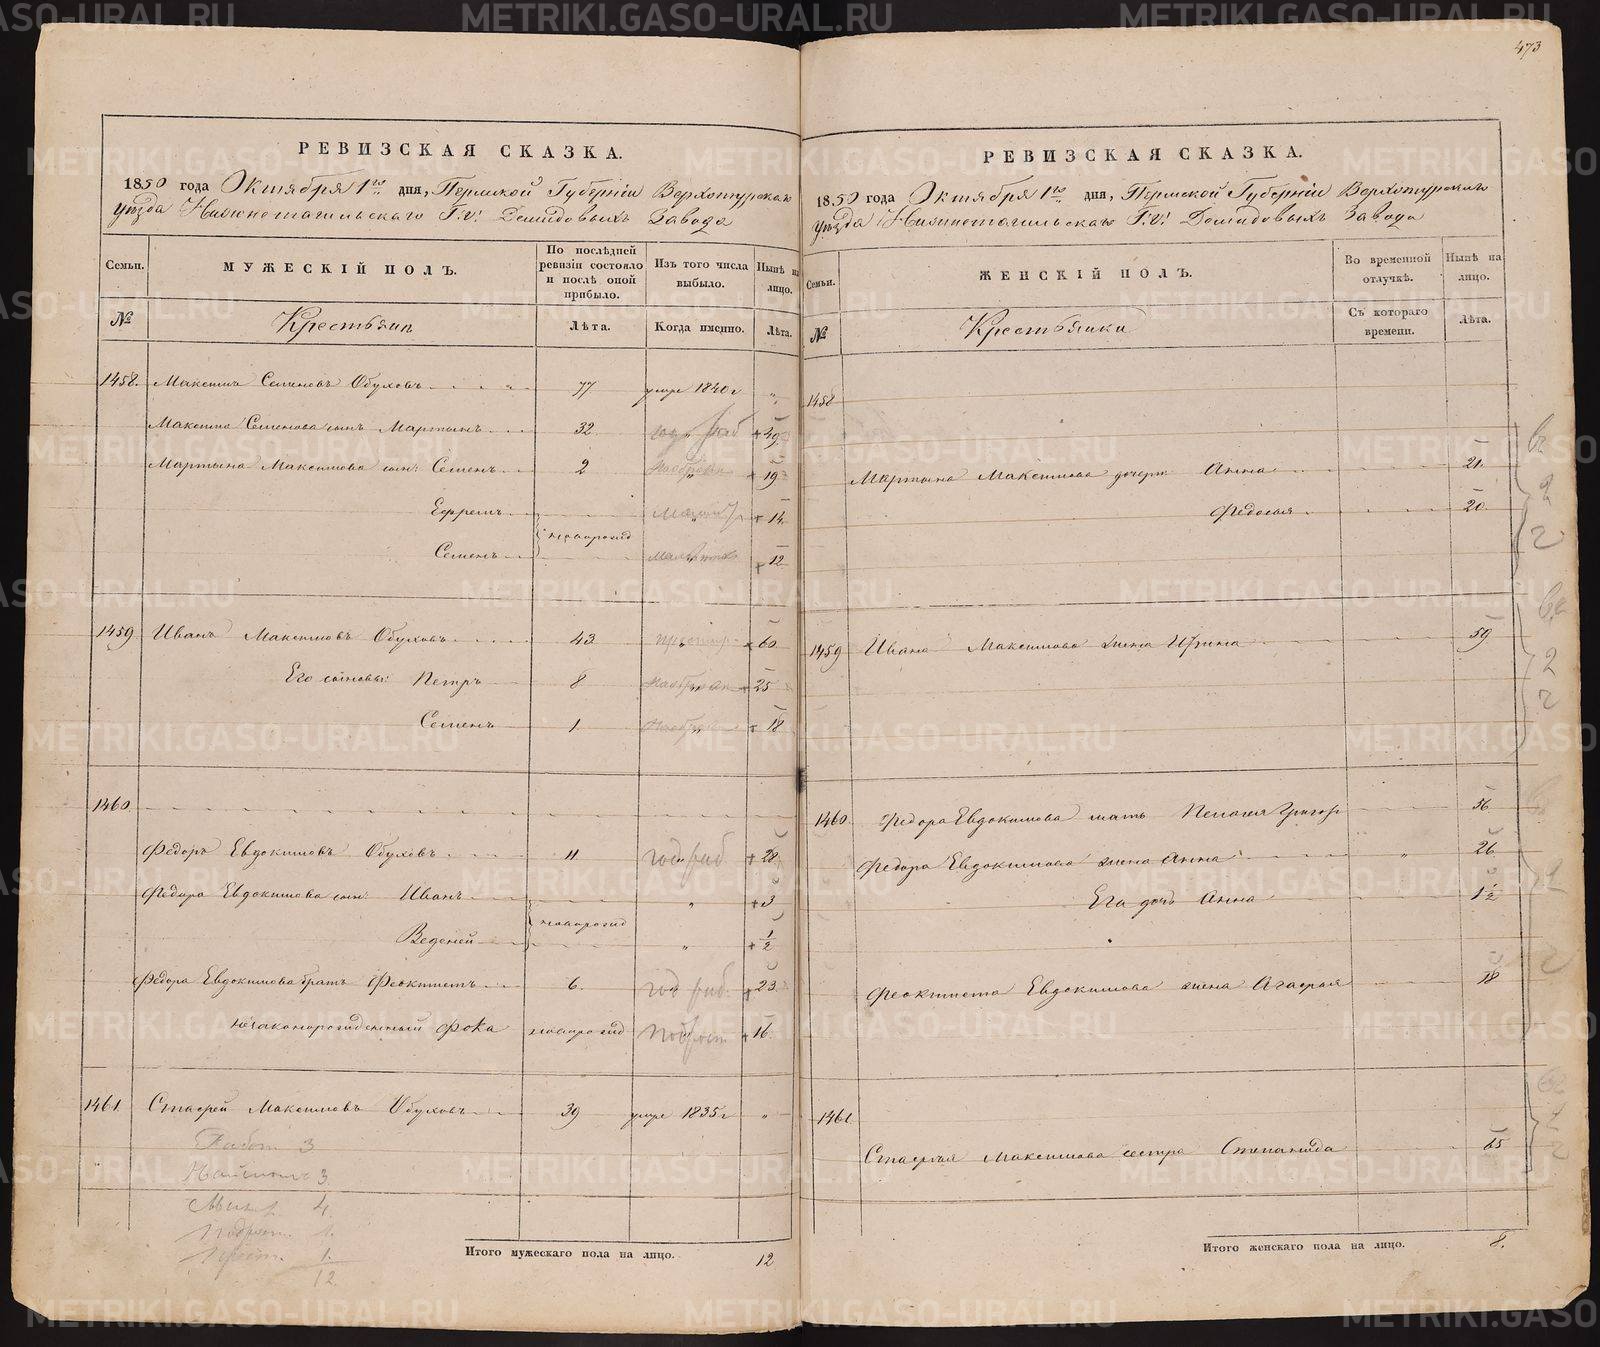 473
РЕВИЗСКАЯ СКАЗКА.
1850 года Октября 1го дня, Пермской Губерніи Верхотурскаго
уѣзда Нижнетагильскаго Г.г. Демидовыхъ Завода
Семьи.
МУЖЕСКІЙ ПОЛЪ.
По послѣдней ревизіи состояло и послѣ оной прибыло.
Изъ того числа выбыло.
Нынѣ на лицо.
№
Крестьянъ
Лѣта.
Когда именно.
Лѣта.
1458. Максимъ Семеновъ Обуховъ 77 умре 1840 г „
Максима Семенова сынъ Мартынъ 32 + 49
Мартына Максимова сын: Семенъ 2 19
Ефремъ + 14
новорожд
Семенъ + 12
1459. Иванъ Максимовъ Обуховъ 43 60
Его сыновья: Петръ 8 + 25
Семенъ 1 + 18
1460
Федоръ Евдокимовъ Обуховъ 11 + 28
Федора Евдокимова сын: Иванъ „ + 3
новорожд
Веденей „ + 1/2
Федора Евдокимова братъ Феоктистъ 6. + 23
незаконорожденный Фока новорожд + 16
1461 Стафей Максимовъ Обуховъ 39 умре 1835 г „
Работ 3
3
4
1.
1.
12.
Итого мужескаго пола на лицо. 12
РЕВИЗСКАЯ СКАЗКА.
1850 года Октября 1го дня, Пермской Губерніи Верхотурскаго
уѣзда Нижнетагильскаго Г.г. Демидовыхъ Завода
Семьи.
ЖЕНСКІЙ ПОЛЪ.
Во временной отлучкѣ.
Нынѣ на лицо.
№
Крестьянки
Съ котораго времени.
Лѣта.
1458
Мартына Максимова дочери Анна 21
Федосья 20
1459 Ивана Максимова жена Ирина 59
1460. Федора Евдокимова мать Пелагея Григор 56
Федора Евдокимова жена Анна „ 26
Его дочь Анна 1 1/2
Феоктиста Евдокимова жена Агафья 18
1461
Стафея Максимова сестра Степанида 65
Итого женскаго пола на лицо. 8.
METRIKI.GASO-URAL.RU